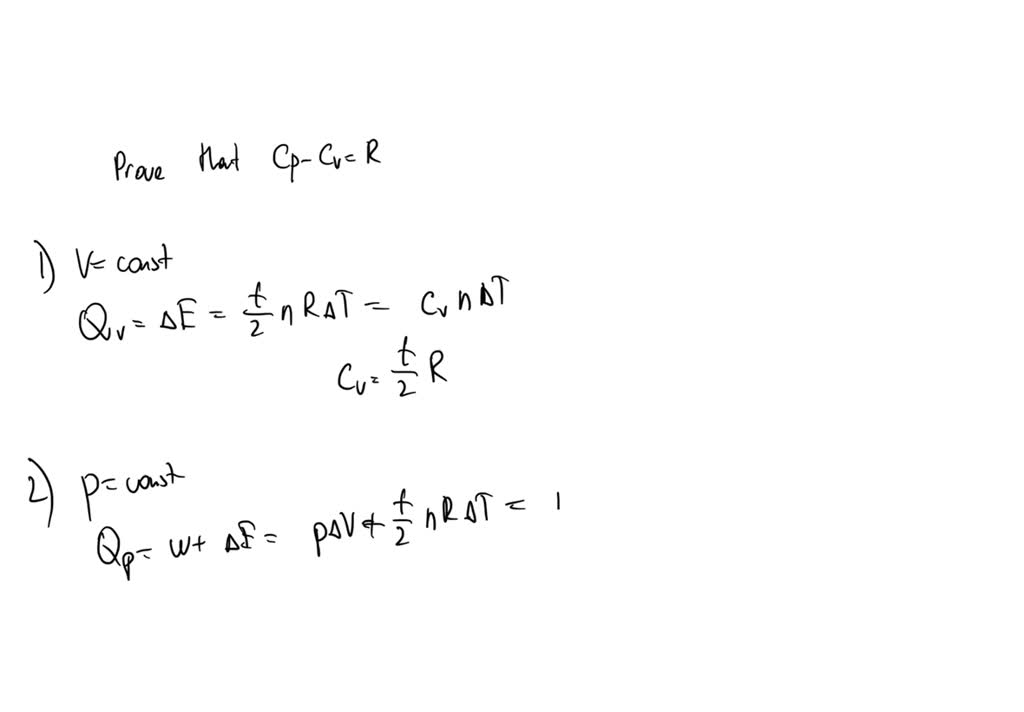 Prove that Cp - Cv = R
1) V = const
Qv = ΔE = f/2 n R ΔT = Cv n ΔT
Cv = f/2 R
2) p = const
Qp = W + ΔE = pΔV + f/2 n R ΔT =